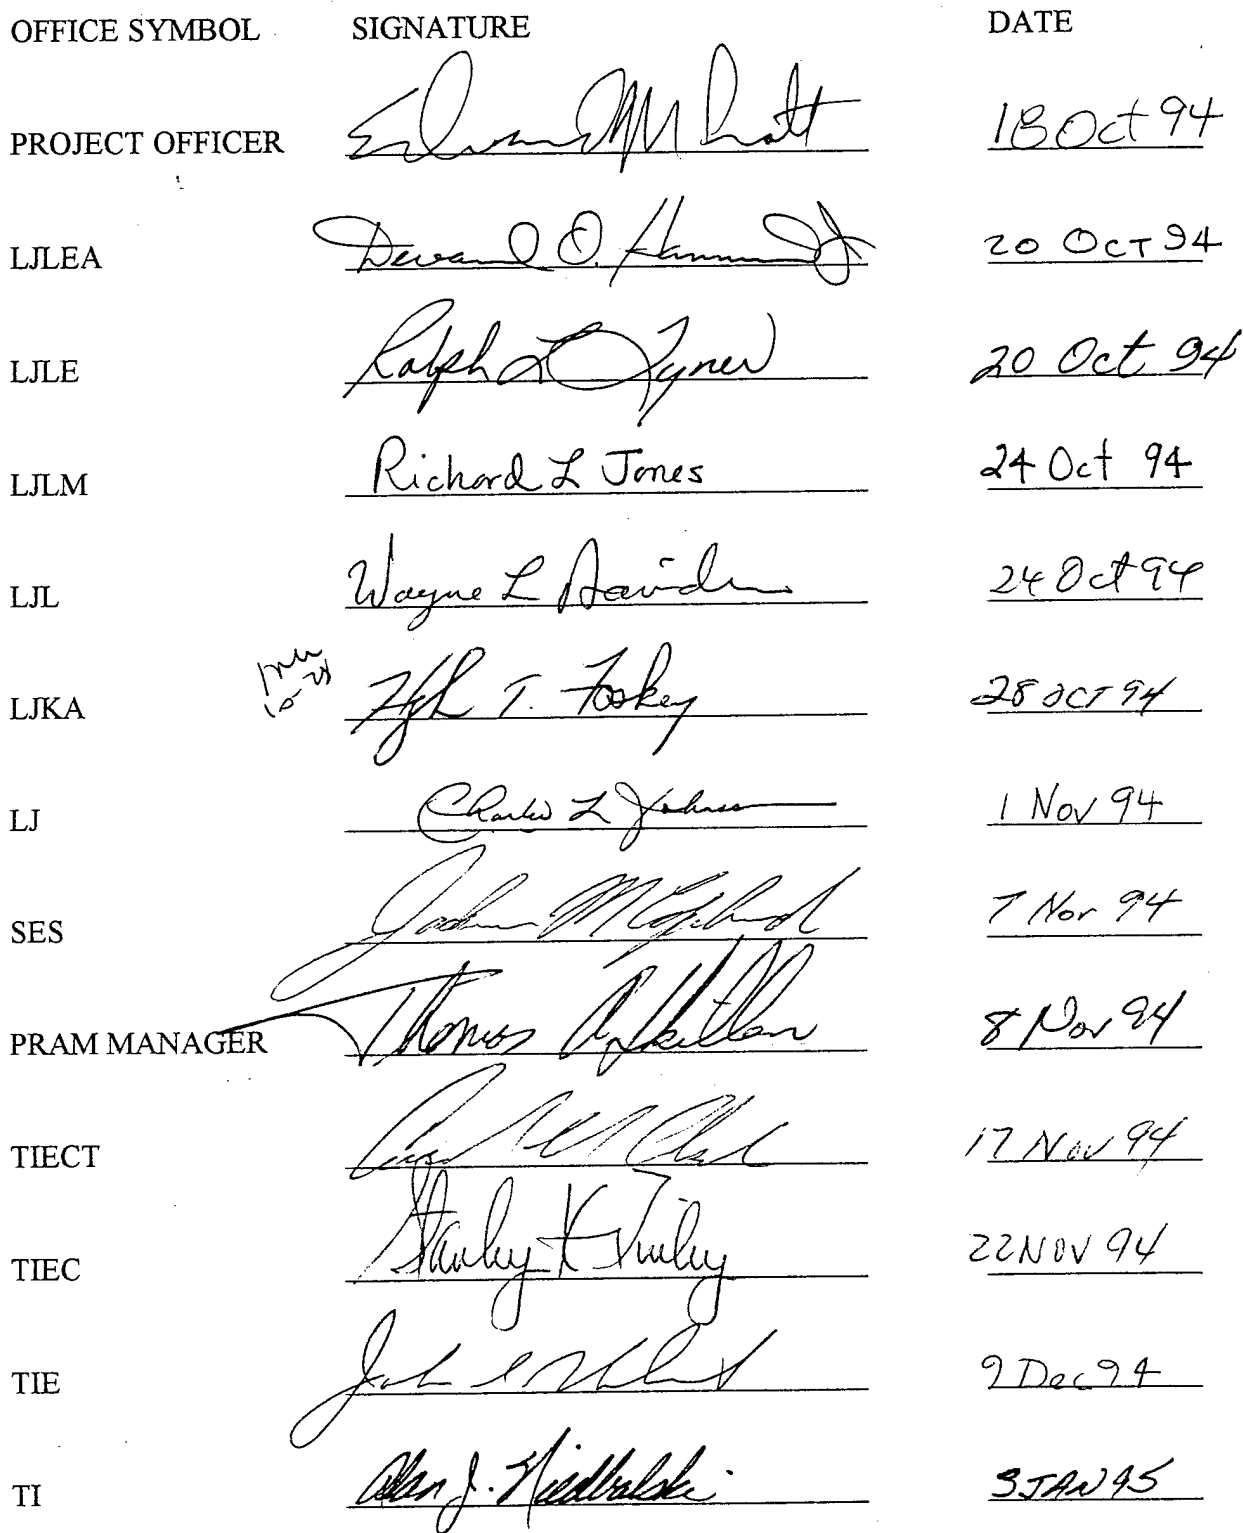 OFFICE SYMBOL SIGNATURE DATE
PROJECT OFFICER M Pratt 18 Oct 94
LJLEA O. 20 OCT 94
LJLE Ralph L Tyner 20 Oct 94
LJLM Richard L Jones 24 Oct 94
LJL Wayne L 24 Oct 94
LJKA T. Foskey 28 OCT 94
LJ Charles L Johnson 1 Nov 94
SES M 7 Nov 94
PRAM MANAGER Thomas 8 Nov 94
TIECT 17 Nov 94
TIEC Stanley K 22 NOV 94
TIE John 9 Dec 94
TI Alan J. Niedbalski 3 JAN 95